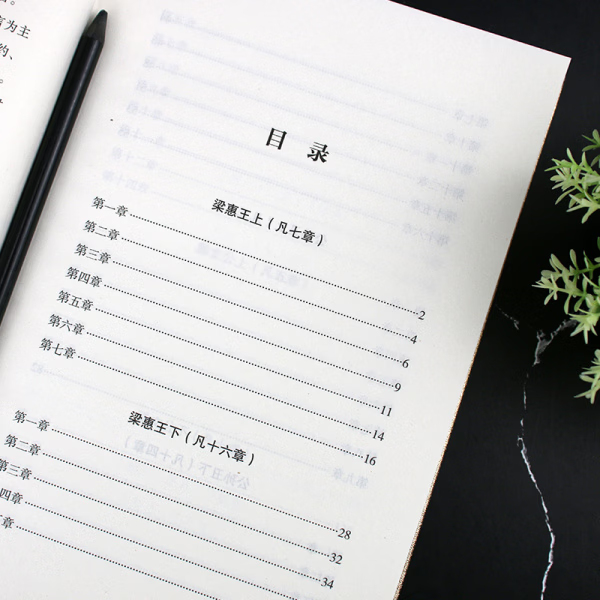 言为主
约、
目 录
梁惠王上（凡七章）
第一章 2
第二章 4
第三章 6
第四章 9
第五章 11
第六章 14
第七章 16
梁惠王下（凡十六章）
第一章 28
第二章 32
第三章 34
四章
章